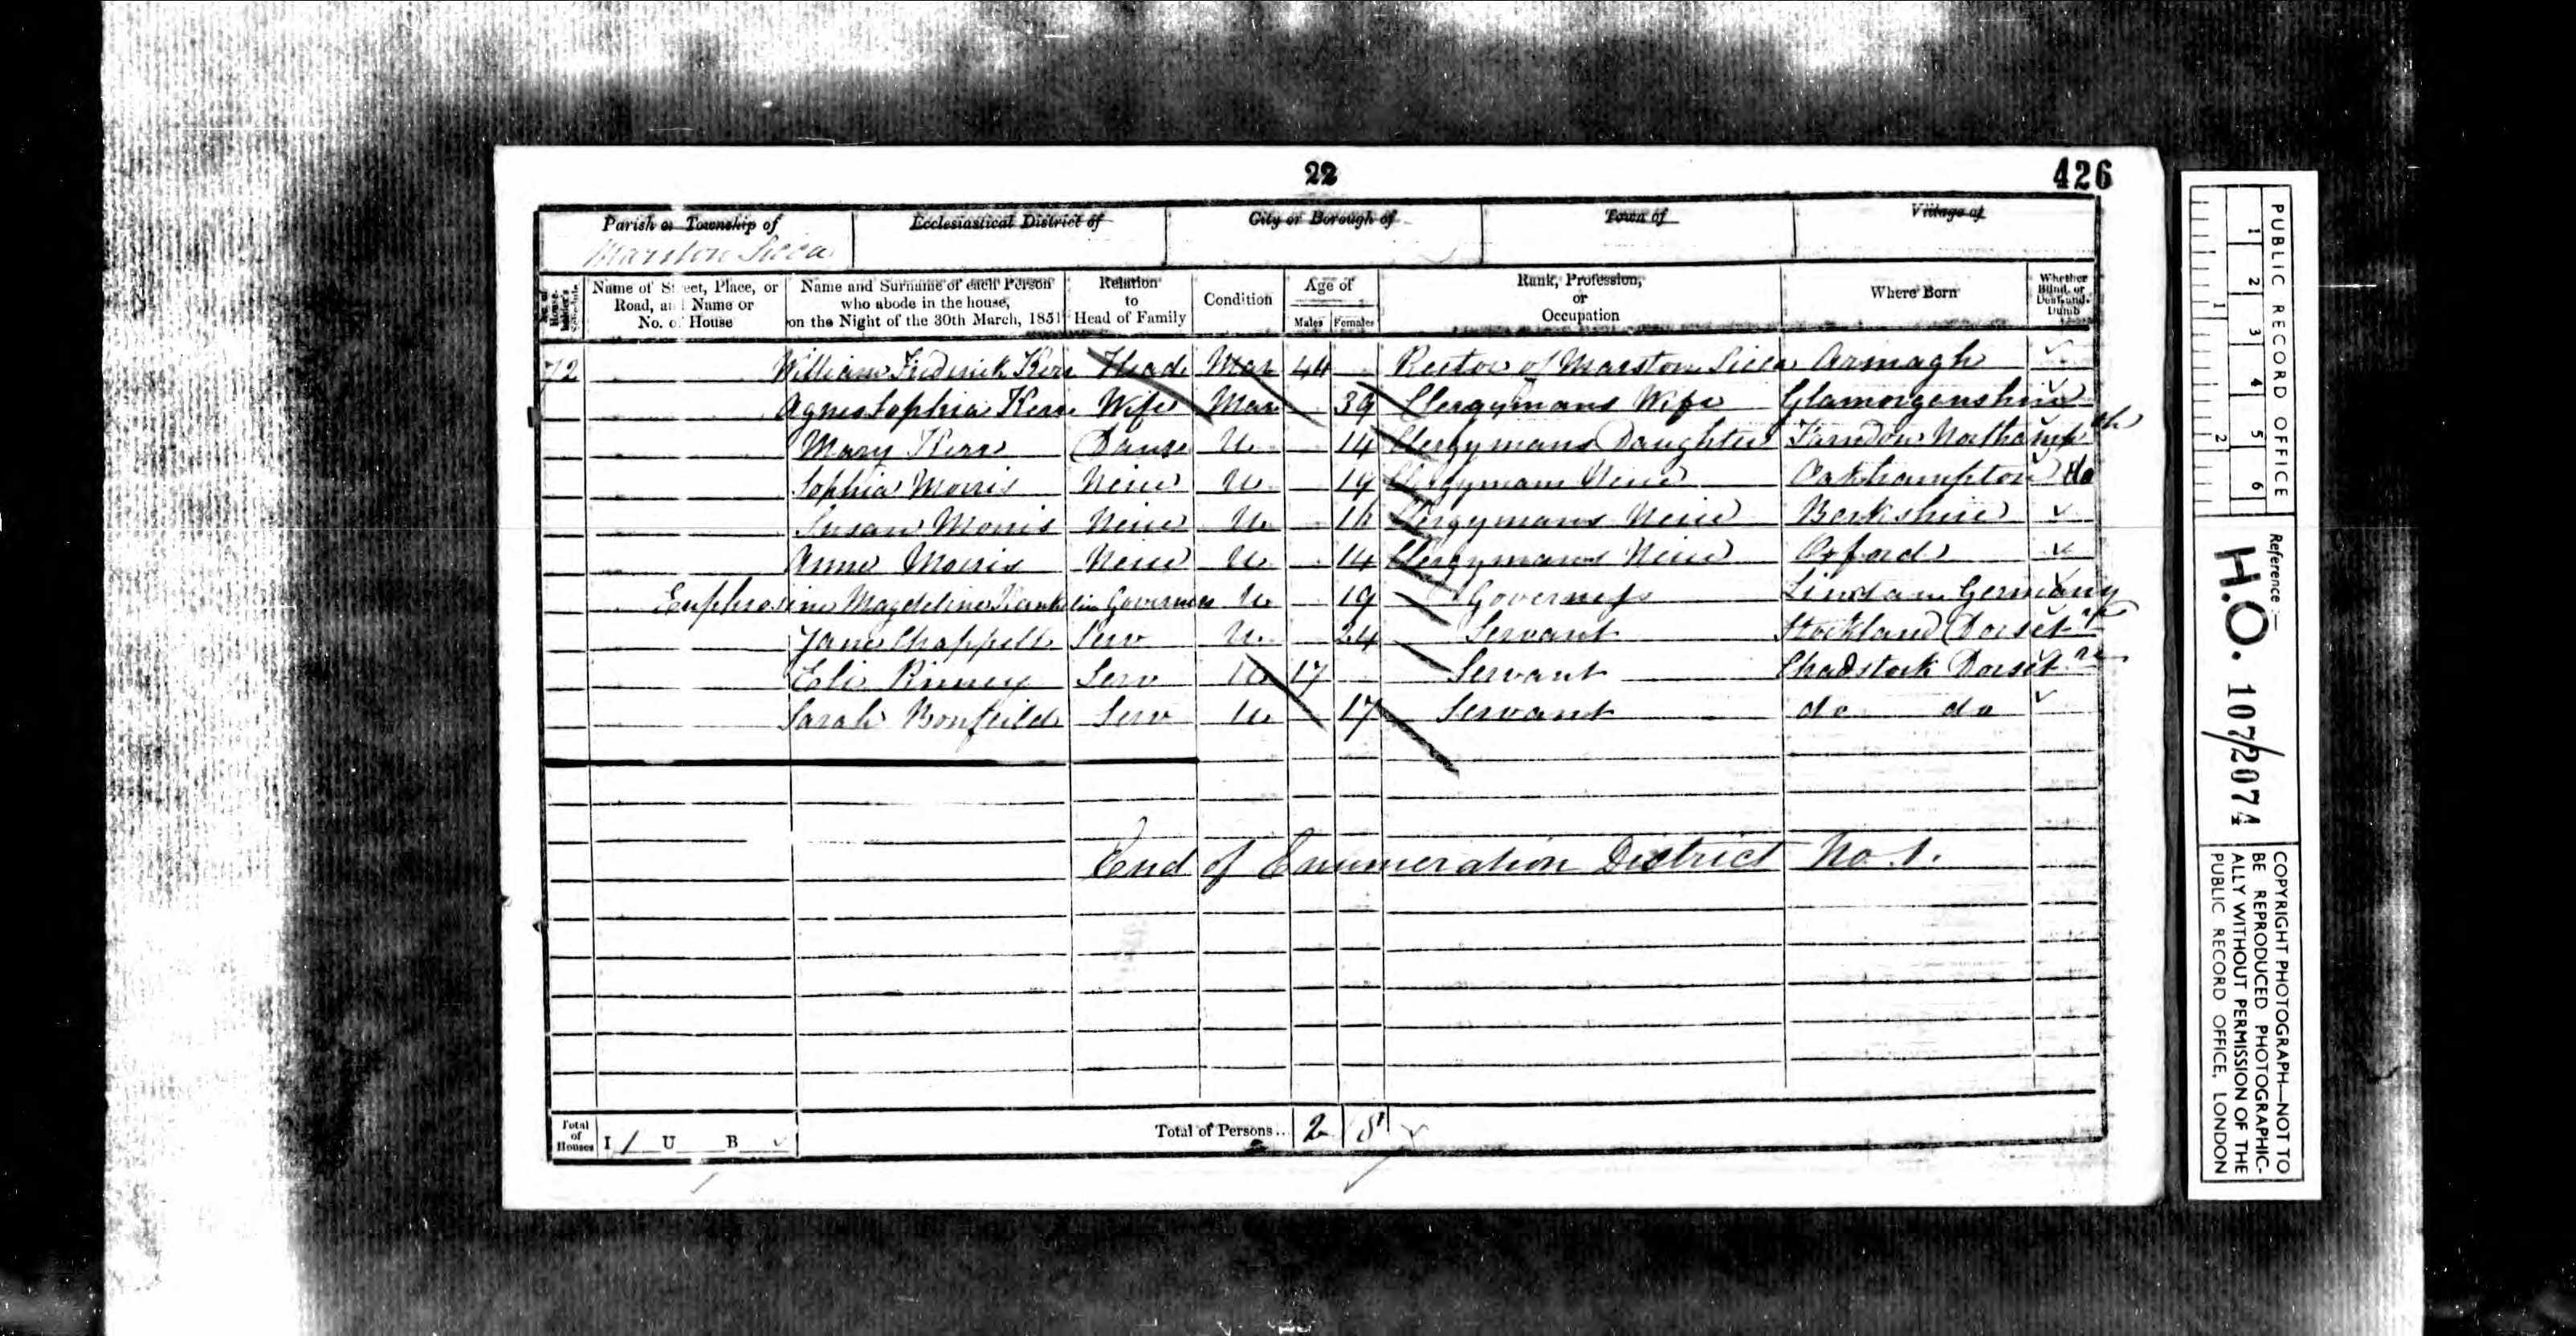 22
426
Parish or Township of
Marston Sicca
Ecclesiastical District of
City or Borough of
Town of
Village of
No. of House-holder's Schedule
Name of Street, Place, or Road, and Name or No. of House
Name and Surname of each Person who abode in the house, on the Night of the 30th March, 1851
Relation to Head of Family
Condition
Age of
Males Females
Rank, Profession, or Occupation
Where Born
Whether Blind, or Deaf-and-Dumb
72 William Frederick Kerr Head Mar 44 Rector of Marston Sicca Armagh
Agnes Sophia Kerr Wife Mar 39 Clergymans Wife Glamorgenshire
Mary Kerr Daur U 14 Clergymans Daughter
Sophia Morris Neice U 19 Clergymans Neice Oakhampton do
Susan Morris Neice U 16 Clergymans Neice Berkshire
Anne Morris Neice U 14 Clergymans Neice Oxford
Euphrosine Magdeline Governess U 19 Governess Lindau Germany
Jane Chappell Serv U 24 Servant Stockland Dorset
Eli Pinney Serv U 17 Servant Chadstock Dorset
Sarah Bonfeild Serv U 17 Servant do do
End of Enumeration District No. 1.
Total of Houses I 1 U B
Total of Persons... 2 8
PUBLIC RECORD OFFICE
1 2 3 4 5 6
1 2
Reference :-
H.O. 107/2074
COPYRIGHT PHOTOGRAPH—NOT TO
BE REPRODUCED PHOTOGRAPHIC-
ALLY WITHOUT PERMISSION OF THE
PUBLIC RECORD OFFICE, LONDON